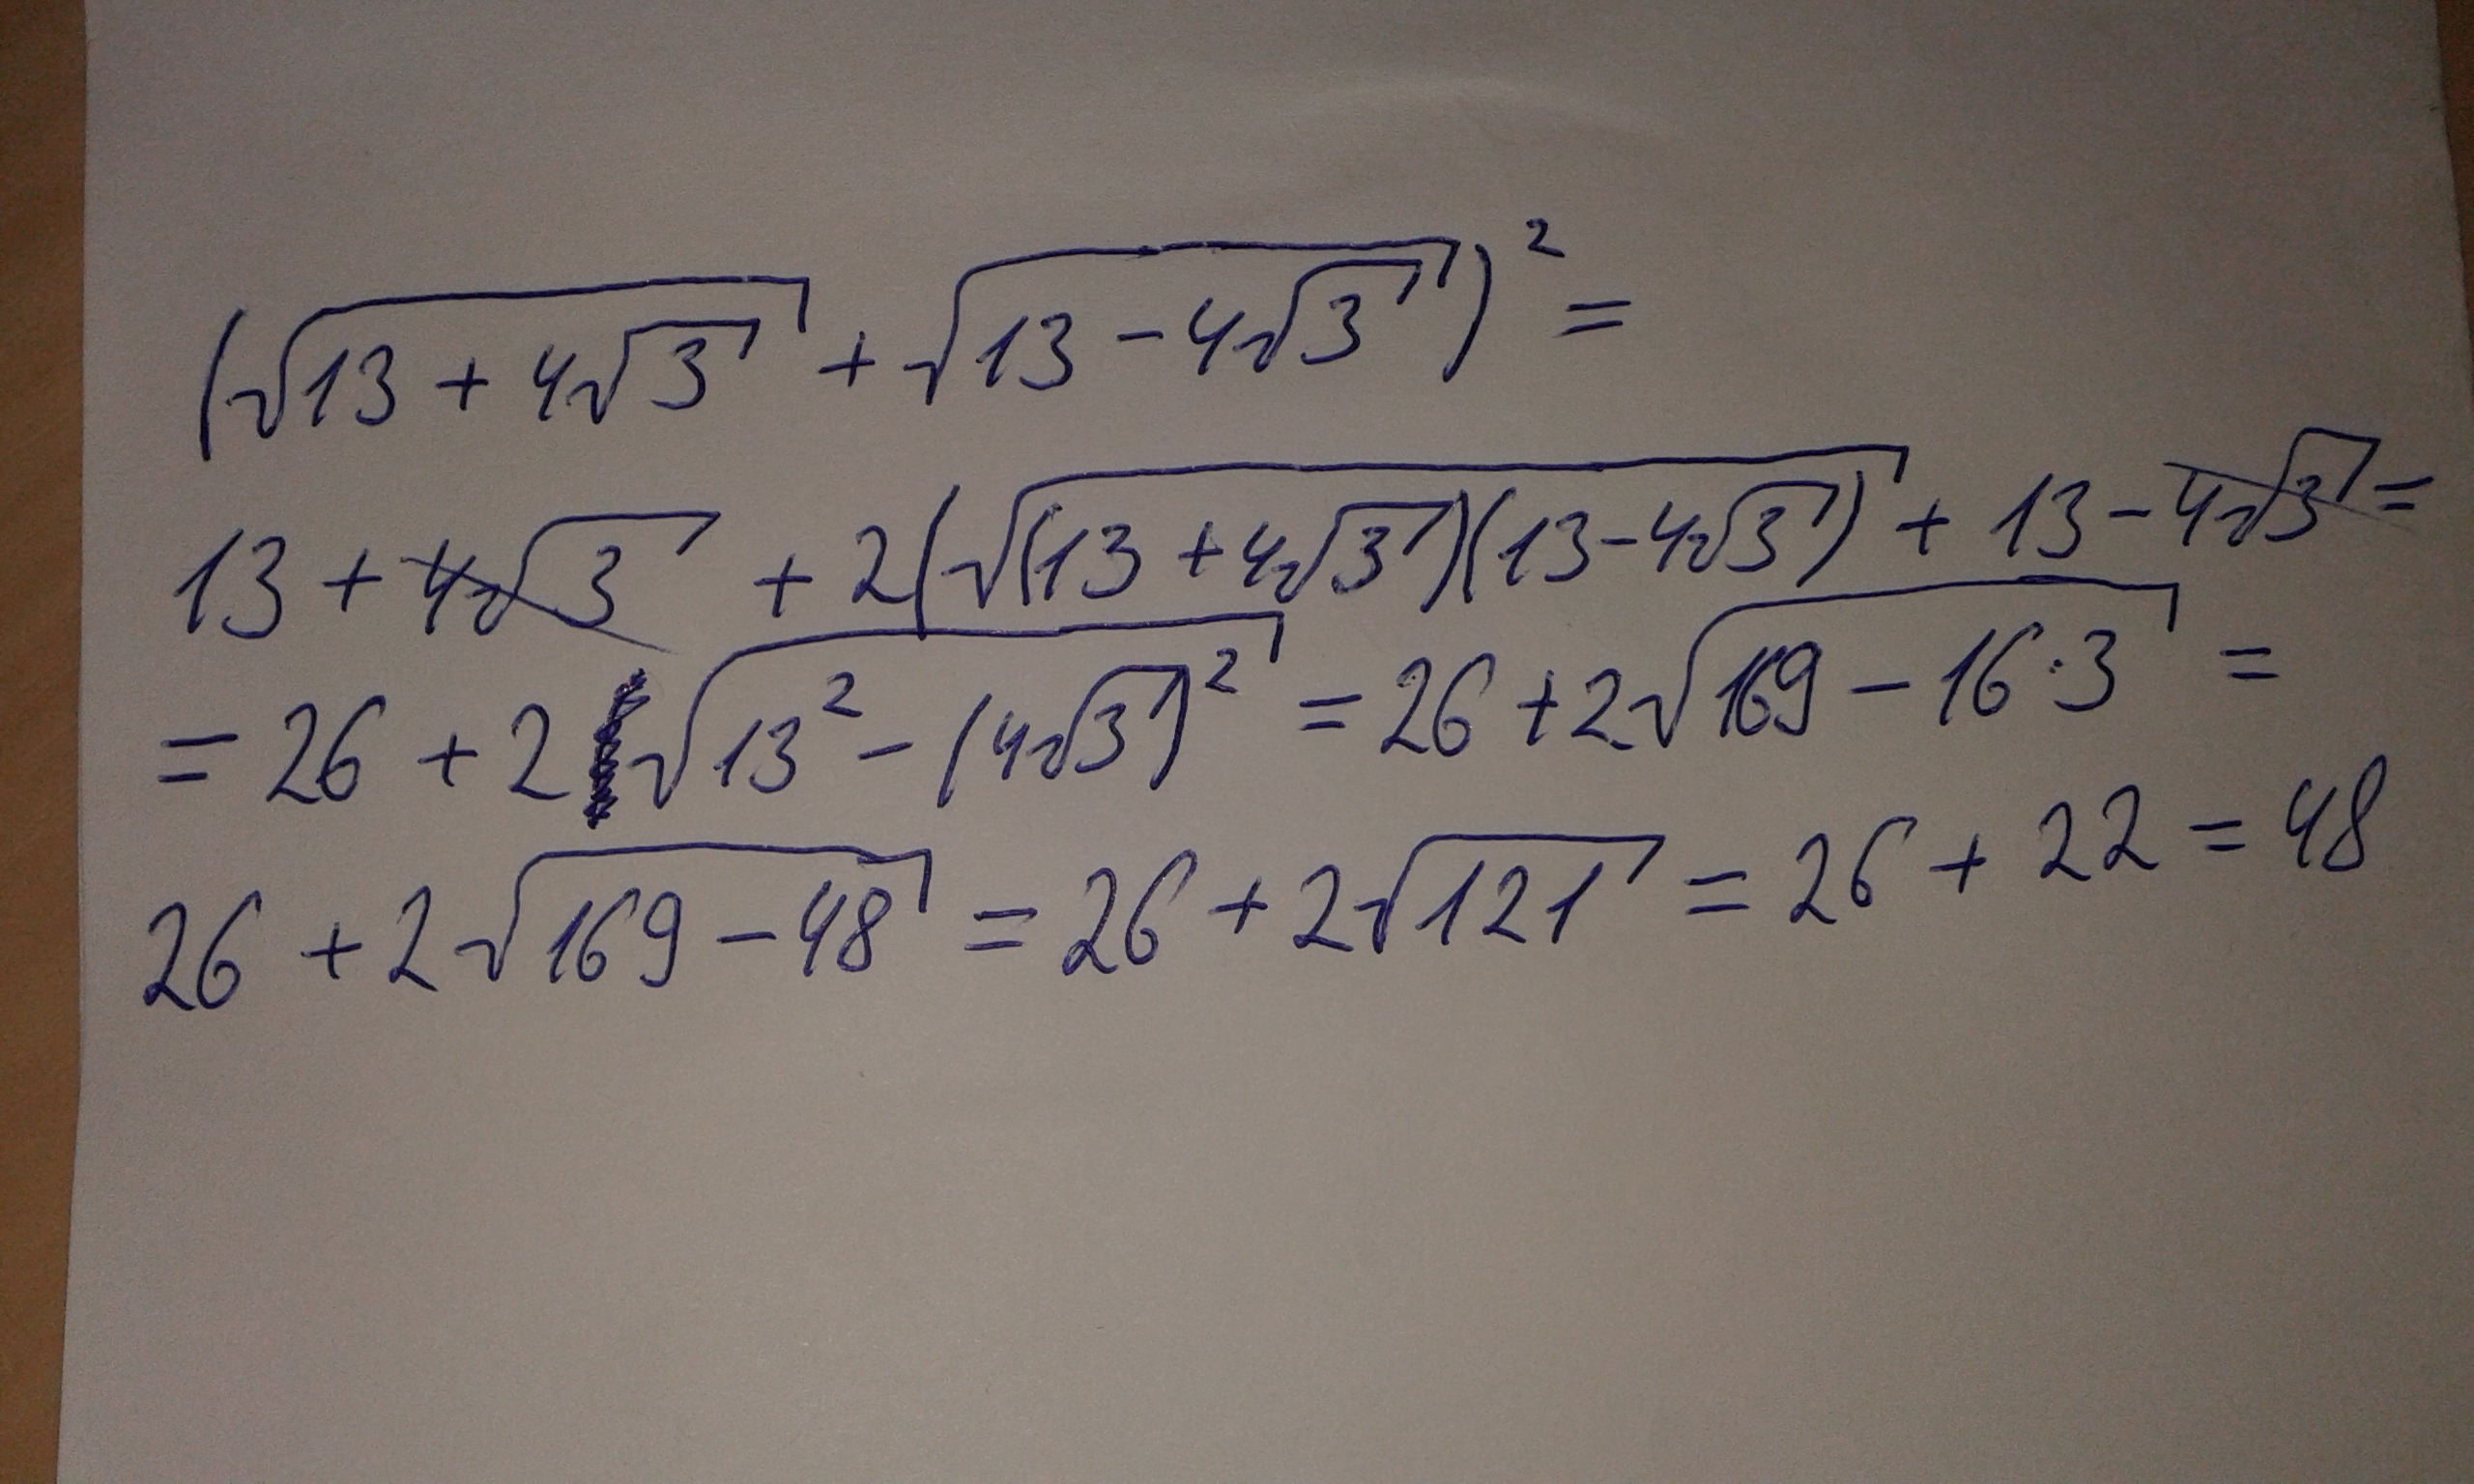 (√(13 + 4√3) + √(13 - 4√3))² =
13 + 4√3 + 2(√((13 + 4√3)(13 - 4√3)) + 13 - 4√3 =
= 26 + 2 √(13² - (4√3)²) = 26 + 2√(169 - 16·3) =
26 + 2√(169 - 48) = 26 + 2√121 = 26 + 22 = 48